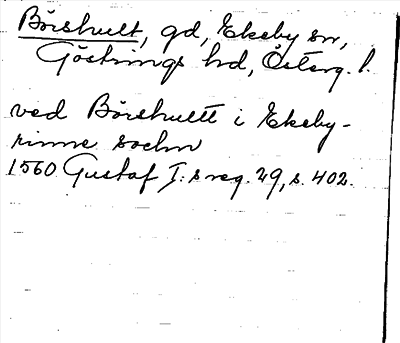 Börshult, gd, Ekeby sn,
Göstrings hd, Österg. l.
ved Börshultt i Ekeby-
rinne sochn
1560 Gustaf I:s reg. 29, s. 402.